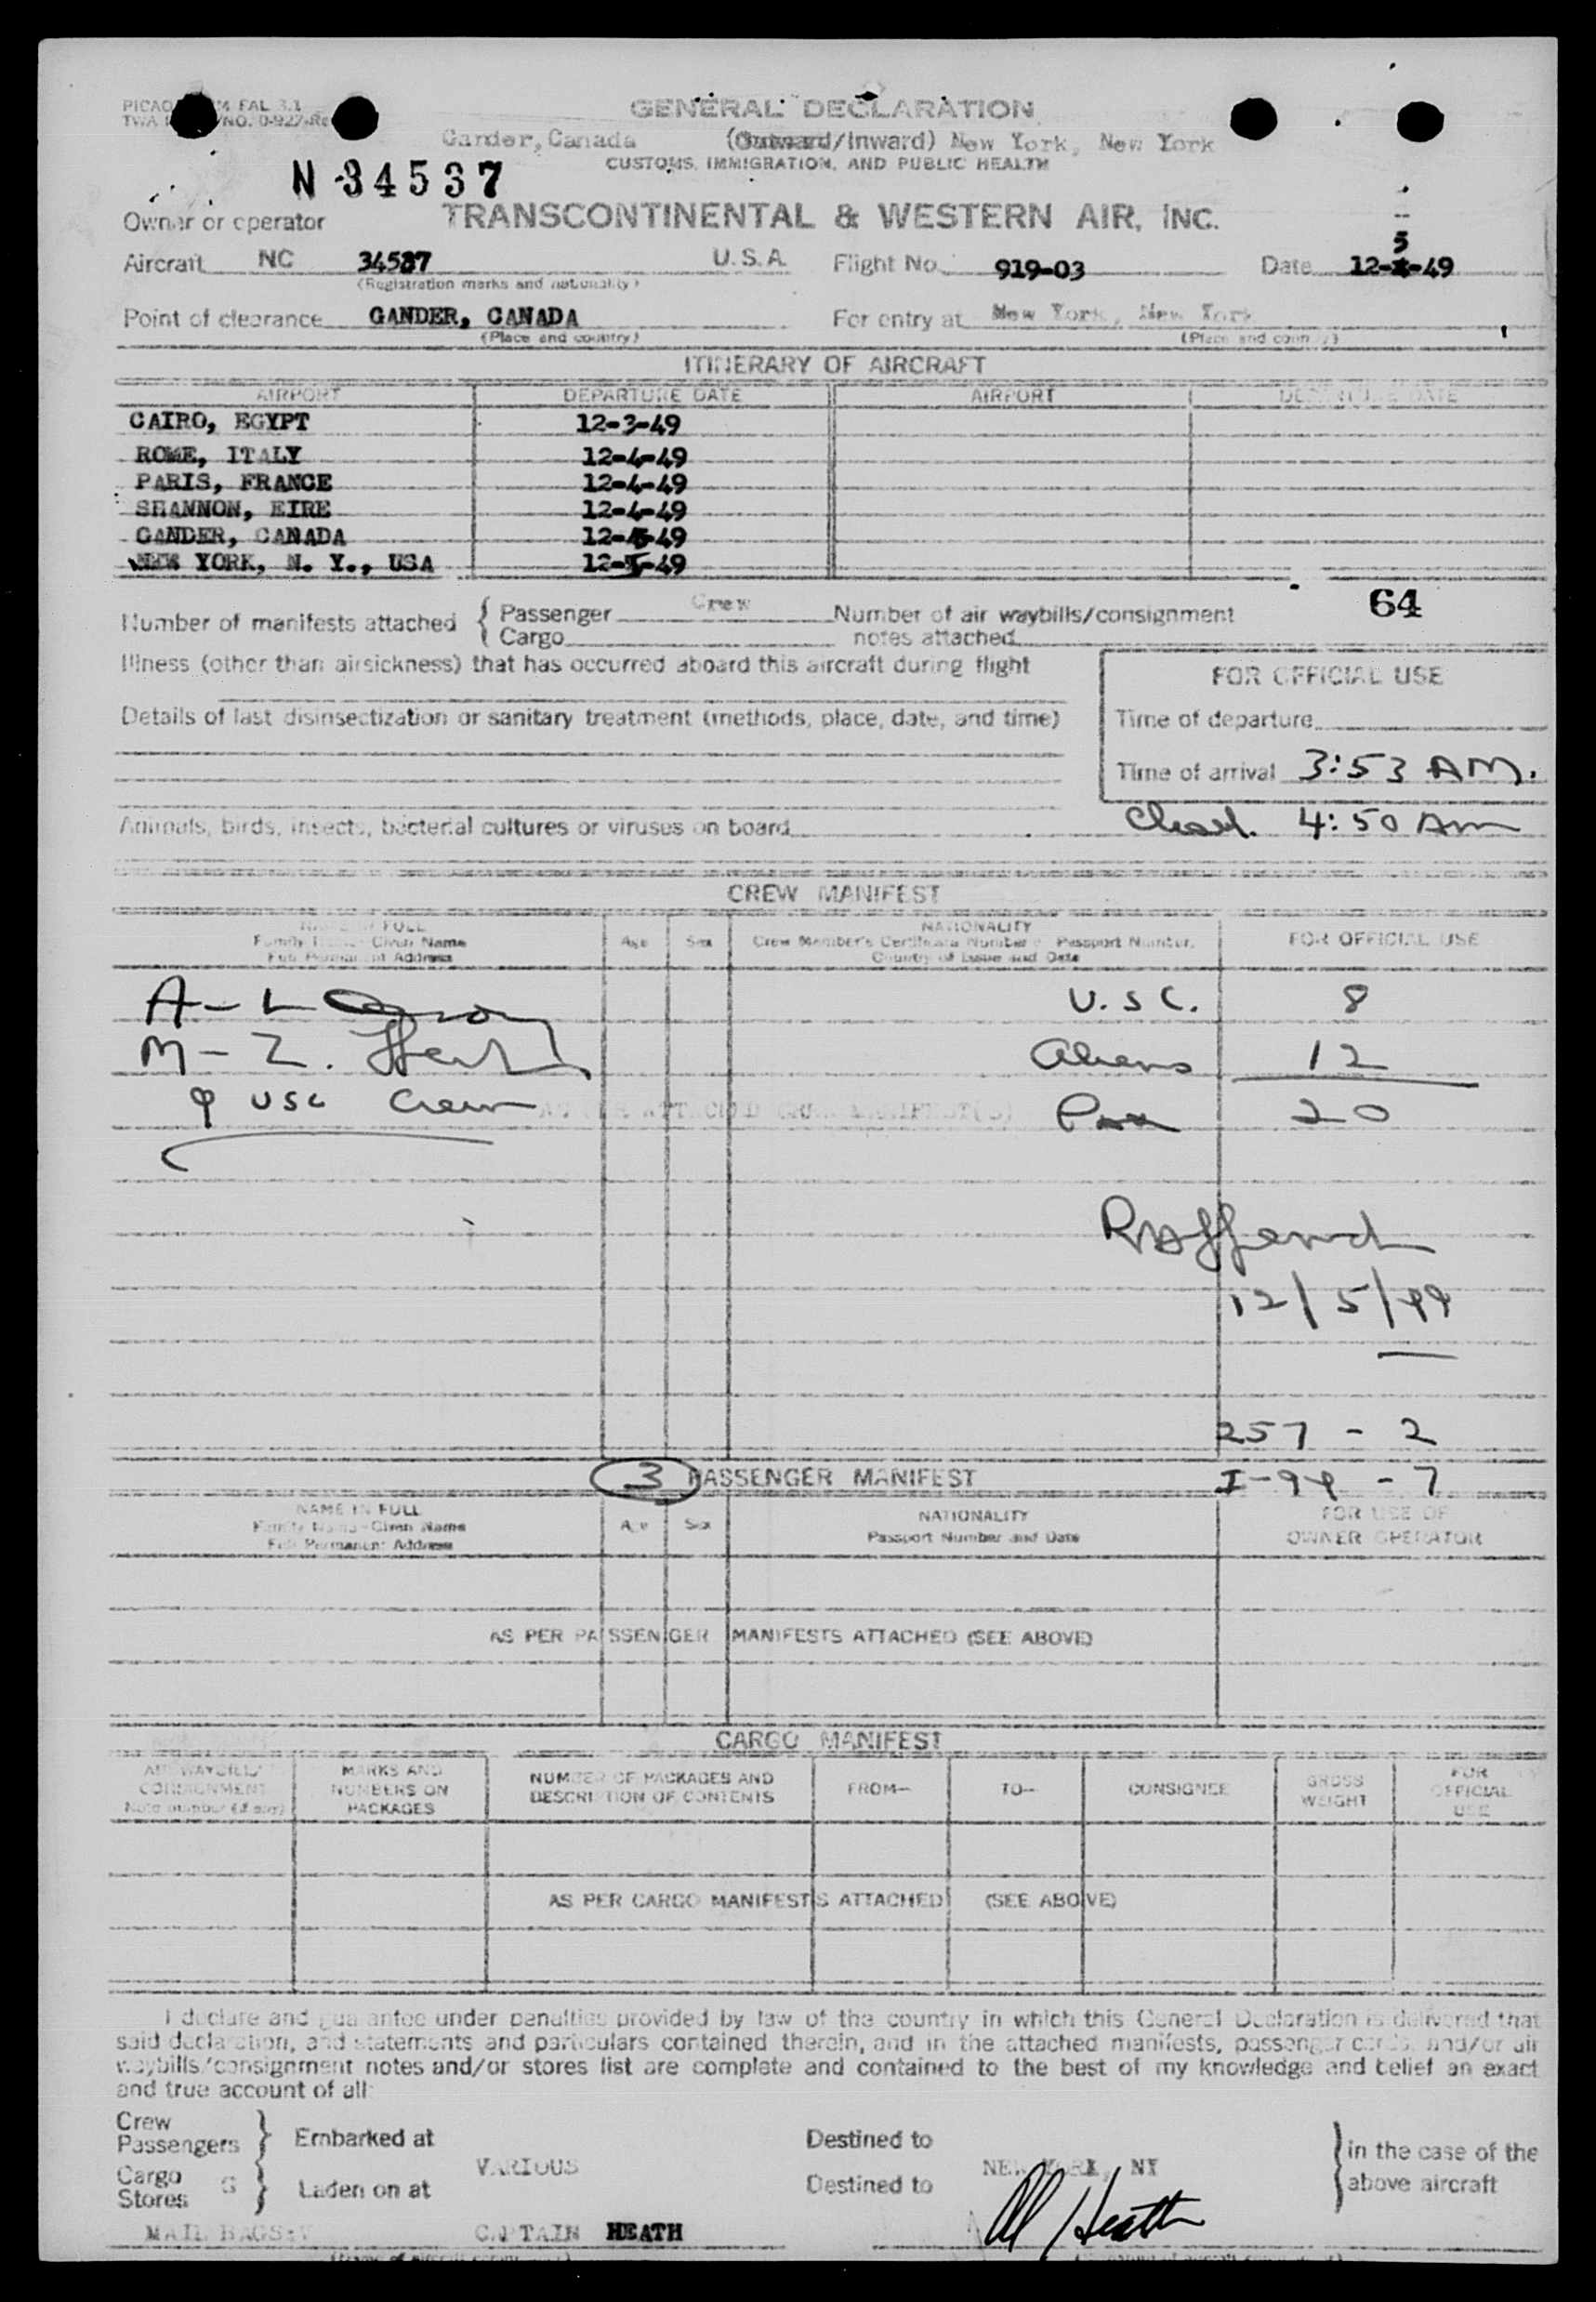 GENERAL DECLARATION
Gander, Canada (Outward/Inward) New York, New York
CUSTOMS, IMMIGRATION, AND PUBLIC HEALTH
N 34537
Owner or operator TRANSCONTINENTAL & WESTERN AIR, INC.
Aircraft NC 34537 U.S.A. Flight No. 919-03 Date 12-5-49
(Registration marks and nationality)
Point of clearance GANDER, CANADA For entry at New York, New York
(Place and country) (Place and country)
ITINERARY OF AIRCRAFT
AIRPORT DEPARTURE DATE AIRPORT DEPARTURE DATE
CAIRO, EGYPT 12-3-49
ROME, ITALY 12-4-49
PARIS, FRANCE 12-4-49
SHANNON, EIRE 12-4-49
GANDER, CANADA 12-5-49
NEW YORK, N. Y., USA 12-5-49
64
Number of manifests attached { Passenger Crew Number of air waybills/consignment
Cargo notes attached
Illness (other than airsickness) that has occurred aboard this aircraft during flight
FOR OFFICIAL USE
Details of last disinsectization or sanitary treatment (methods, place, date, and time)
Time of departure
Time of arrival 3:53 AM.
Animals, birds, insects, bacterial cultures or viruses on board
4:50 Am
CREW MANIFEST
NAME IN FULL
Family Name - Given Name
Full Permanent Address
Age Sex
NATIONALITY
Crew Member's Certificate Number Passport Number.
Country of Issue and Date
FOR OFFICIAL USE
A - L U.S.C. 8
M - Z. Aliens 12
9 USC Crew Pax 20
AS PER ATTACHED CREW MANIFEST(S)
12/5/49
257 - 2
3 PASSENGER MANIFEST I-94 - 7
NAME IN FULL
Family Name - Given Name
Full Permanent Address
Age Sex
NATIONALITY
Passport Number and Date
FOR USE OF
OWNER OPERATOR
AS PER PASSENGER MANIFESTS ATTACHED (SEE ABOVE)
CARGO MANIFEST
AIR WAYBILL/
CONSIGNMENT
Note number (if any)
MARKS AND
NUMBERS ON
PACKAGES
NUMBER OF PACKAGES AND
DESCRIPTION OF CONTENTS
FROM— TO— CONSIGNEE
GROSS
WEIGHT
FOR
OFFICIAL
USE
AS PER CARGO MANIFESTS ATTACHED (SEE ABOVE)
I declare and guarantee under penalties provided by law of the country in which this General Declaration is delivered that
said declaration, and statements and particulars contained therein, and in the attached manifests, passenger cards, and/or air
waybills/consignment notes and/or stores list are complete and contained to the best of my knowledge and belief an exact
and true account of all:
Crew
Passengers } Embarked at Destined to
VARIOUS NEW YORK, NY
in the case of the
above aircraft
Cargo
Stores } Laden on at Destined to
MAIL BAGS: CAPTAIN HEATH Al Heath